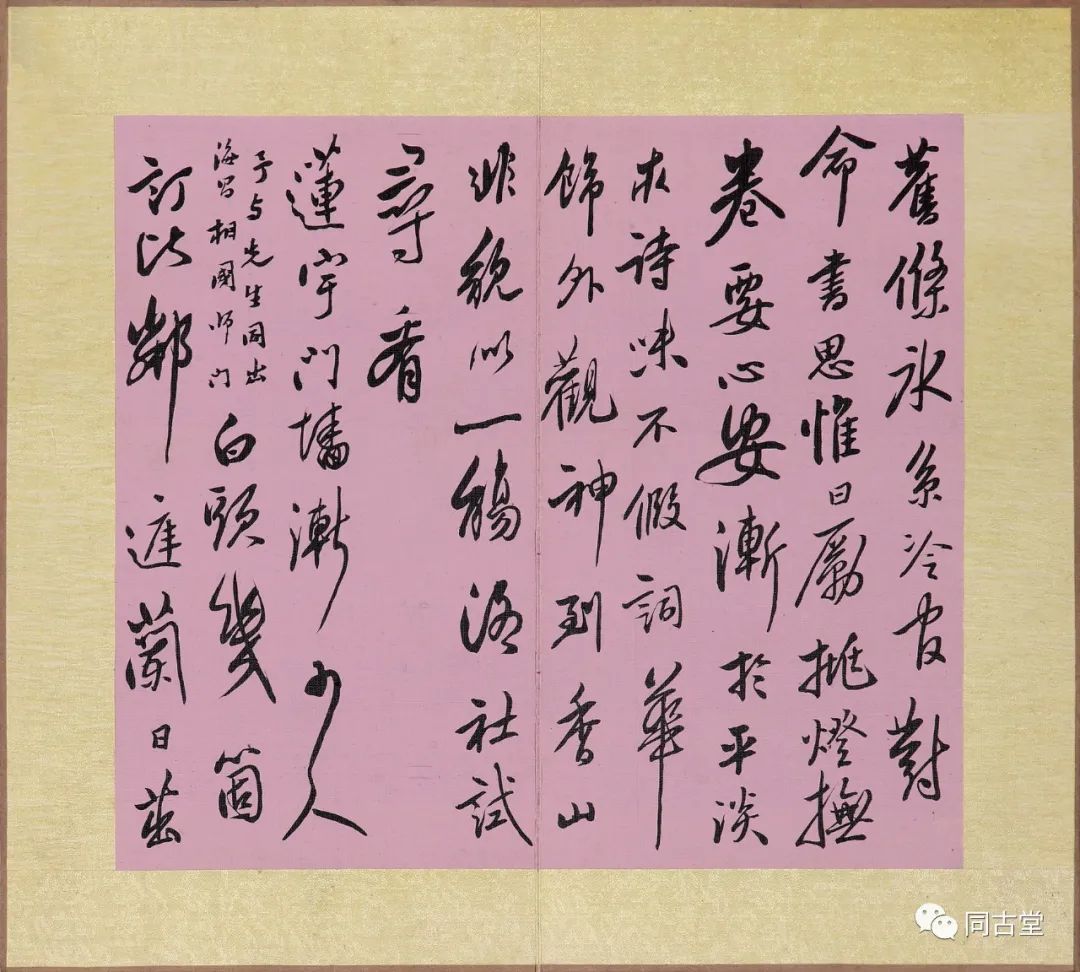 舊條冰系冷官對
命書思惟日勵挑燈撫
卷要心安漸於平淡
求詩味不假詞華
飾外觀神到香山
非貌似一觴洛社試
尋看
蓮宇門墻漸少人
予与先生同出
海昌相國师门
白頭幾箇
訂比鄰蘭日茁
同古堂